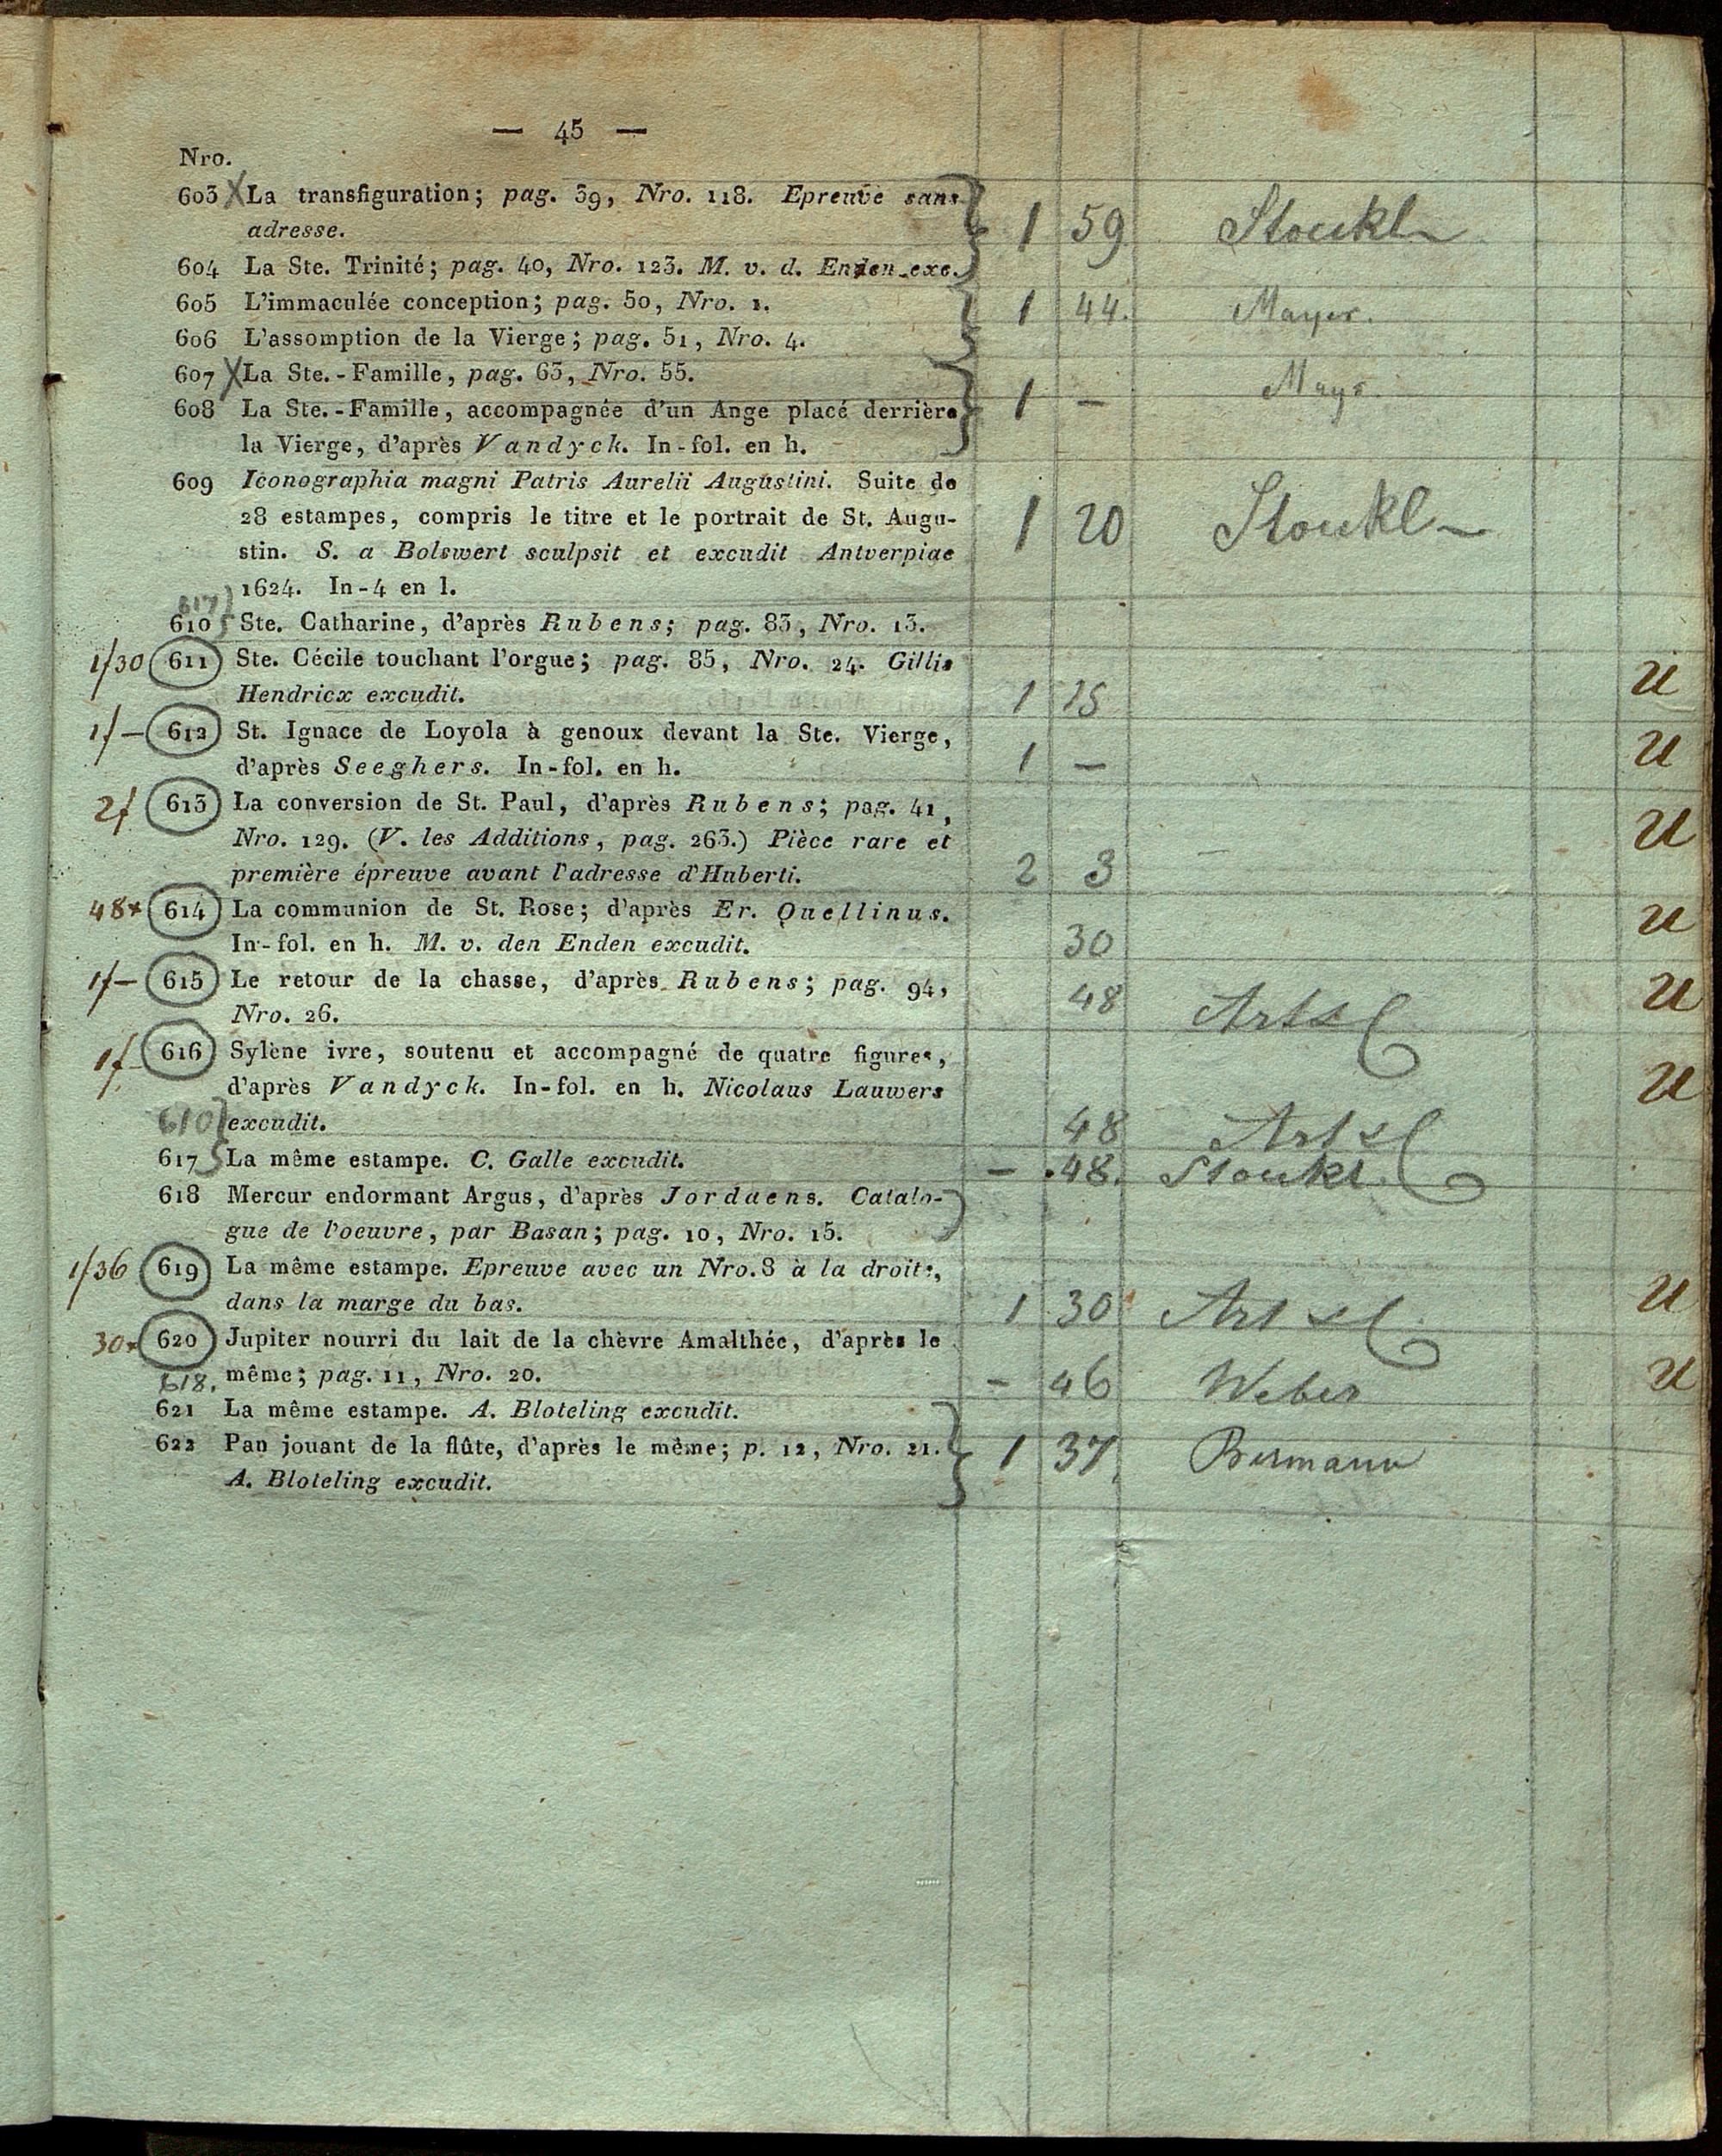 — 45 —
Nro.
603 X La transfiguration; pag. 39, Nro. 118. Epreuve sans
adresse. 1 59 Stoukl
604 La Ste. Trinité; pag. 40, Nro. 123. M. v. d. Enden exc.
605 L'immaculée conception; pag. 50, Nro. 1. 1 44. Mayer.
606 L'assomption de la Vierge; pag. 51, Nro. 4.
607 X La Ste.-Famille, pag. 63, Nro. 55.
608 La Ste.-Famille, accompagnée d'un Ange placé derrière 1 —
la Vierge, d'après Vandyck. In-fol. en h.
609 Iconographia magni Patris Aurelii Augustini. Suite de
28 estampes, compris le titre et le portrait de St. Augu- 1 20 Stoukl
stin. S. a Bolswert sculpsit et excudit Antverpiae
1624. In-4 en l.
617
610 Ste. Catharine, d'après Rubens; pag. 83, Nro. 13.
1f30 611 Ste. Cécile touchant l'orgue; pag. 85, Nro. 24. Gillis U
Hendricx excudit. 1 15
1f— 612 St. Ignace de Loyola à genoux devant la Ste. Vierge, U
d'après Seeghers. In-fol. en h. 1 —
2f 613 La conversion de St. Paul, d'après Rubens; pag. 41, U
Nro. 129. (V. les Additions, pag. 263.) Pièce rare et
première épreuve avant l'adresse d'Huberti. 2 3 —
48x 614 La communion de St. Rose; d'après Er. Quellinus. U
In-fol. en h. M. v. den Enden excudit. 30
1f— 615 Le retour de la chasse, d'après Rubens; pag. 94, 48 U
Nro. 26. Arts
1f— 616 Sylène ivre, soutenu et accompagné de quatre figures,
d'après Vandyck. In-fol. en h. Nicolaus Lauwers U
610 excudit. 48 Arts
617 La même estampe. C. Galle excudit. — 48. Stoukl.
618 Mercur endormant Argus, d'après Jordaens. Catalo-
gue de l'oeuvre, par Basan; pag. 10, Nro. 15.
1f36 619 La même estampe. Epreuve avec un Nro. 8 à la droite,
dans la marge du bas. 1 30 Arts U
30x 620 Jupiter nourri du lait de la chèvre Amalthée, d'après le
même; pag. 11, Nro. 20. — 46 Weber U
618.
621 La même estampe. A. Bloteling excudit.
622 Pan jouant de la flûte, d'après le même; p. 12, Nro. 21. 1 37. Bermann
A. Bloteling excudit.